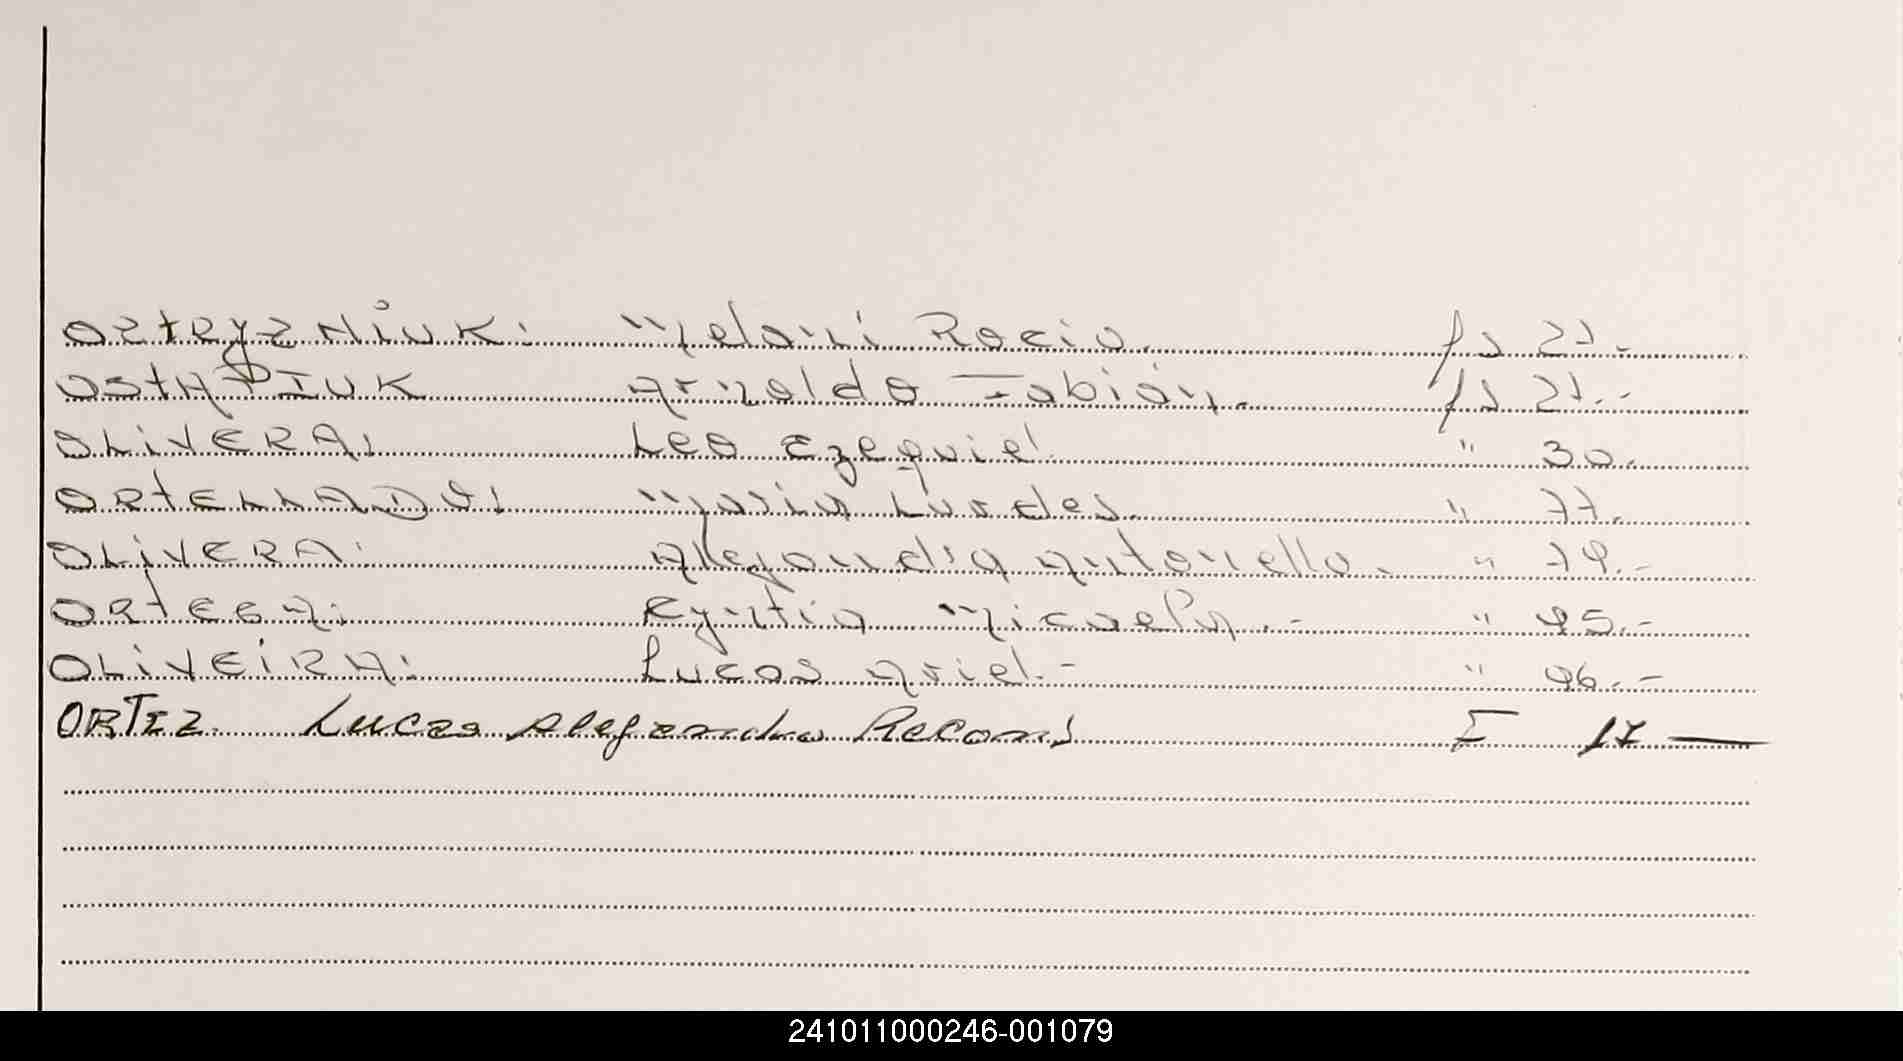 OSTRYZNIUK: Melani Rocio.
OSTAPIUK Arnoldo Fabián. fs 21.-
OLIVERA: Leo Ezequiel. " 30.
ORTELLADO: Maria Lurdes. " 77.
OLIVERA: Alejandra Antonella. " 79.-
ORTEGA: Cyntia Micaela.- " 95.-
OLIVEIRA: Lucas Ariel.- " 96.-
ORTIZ. Lucas Alejandro F 17
241011000246-001079